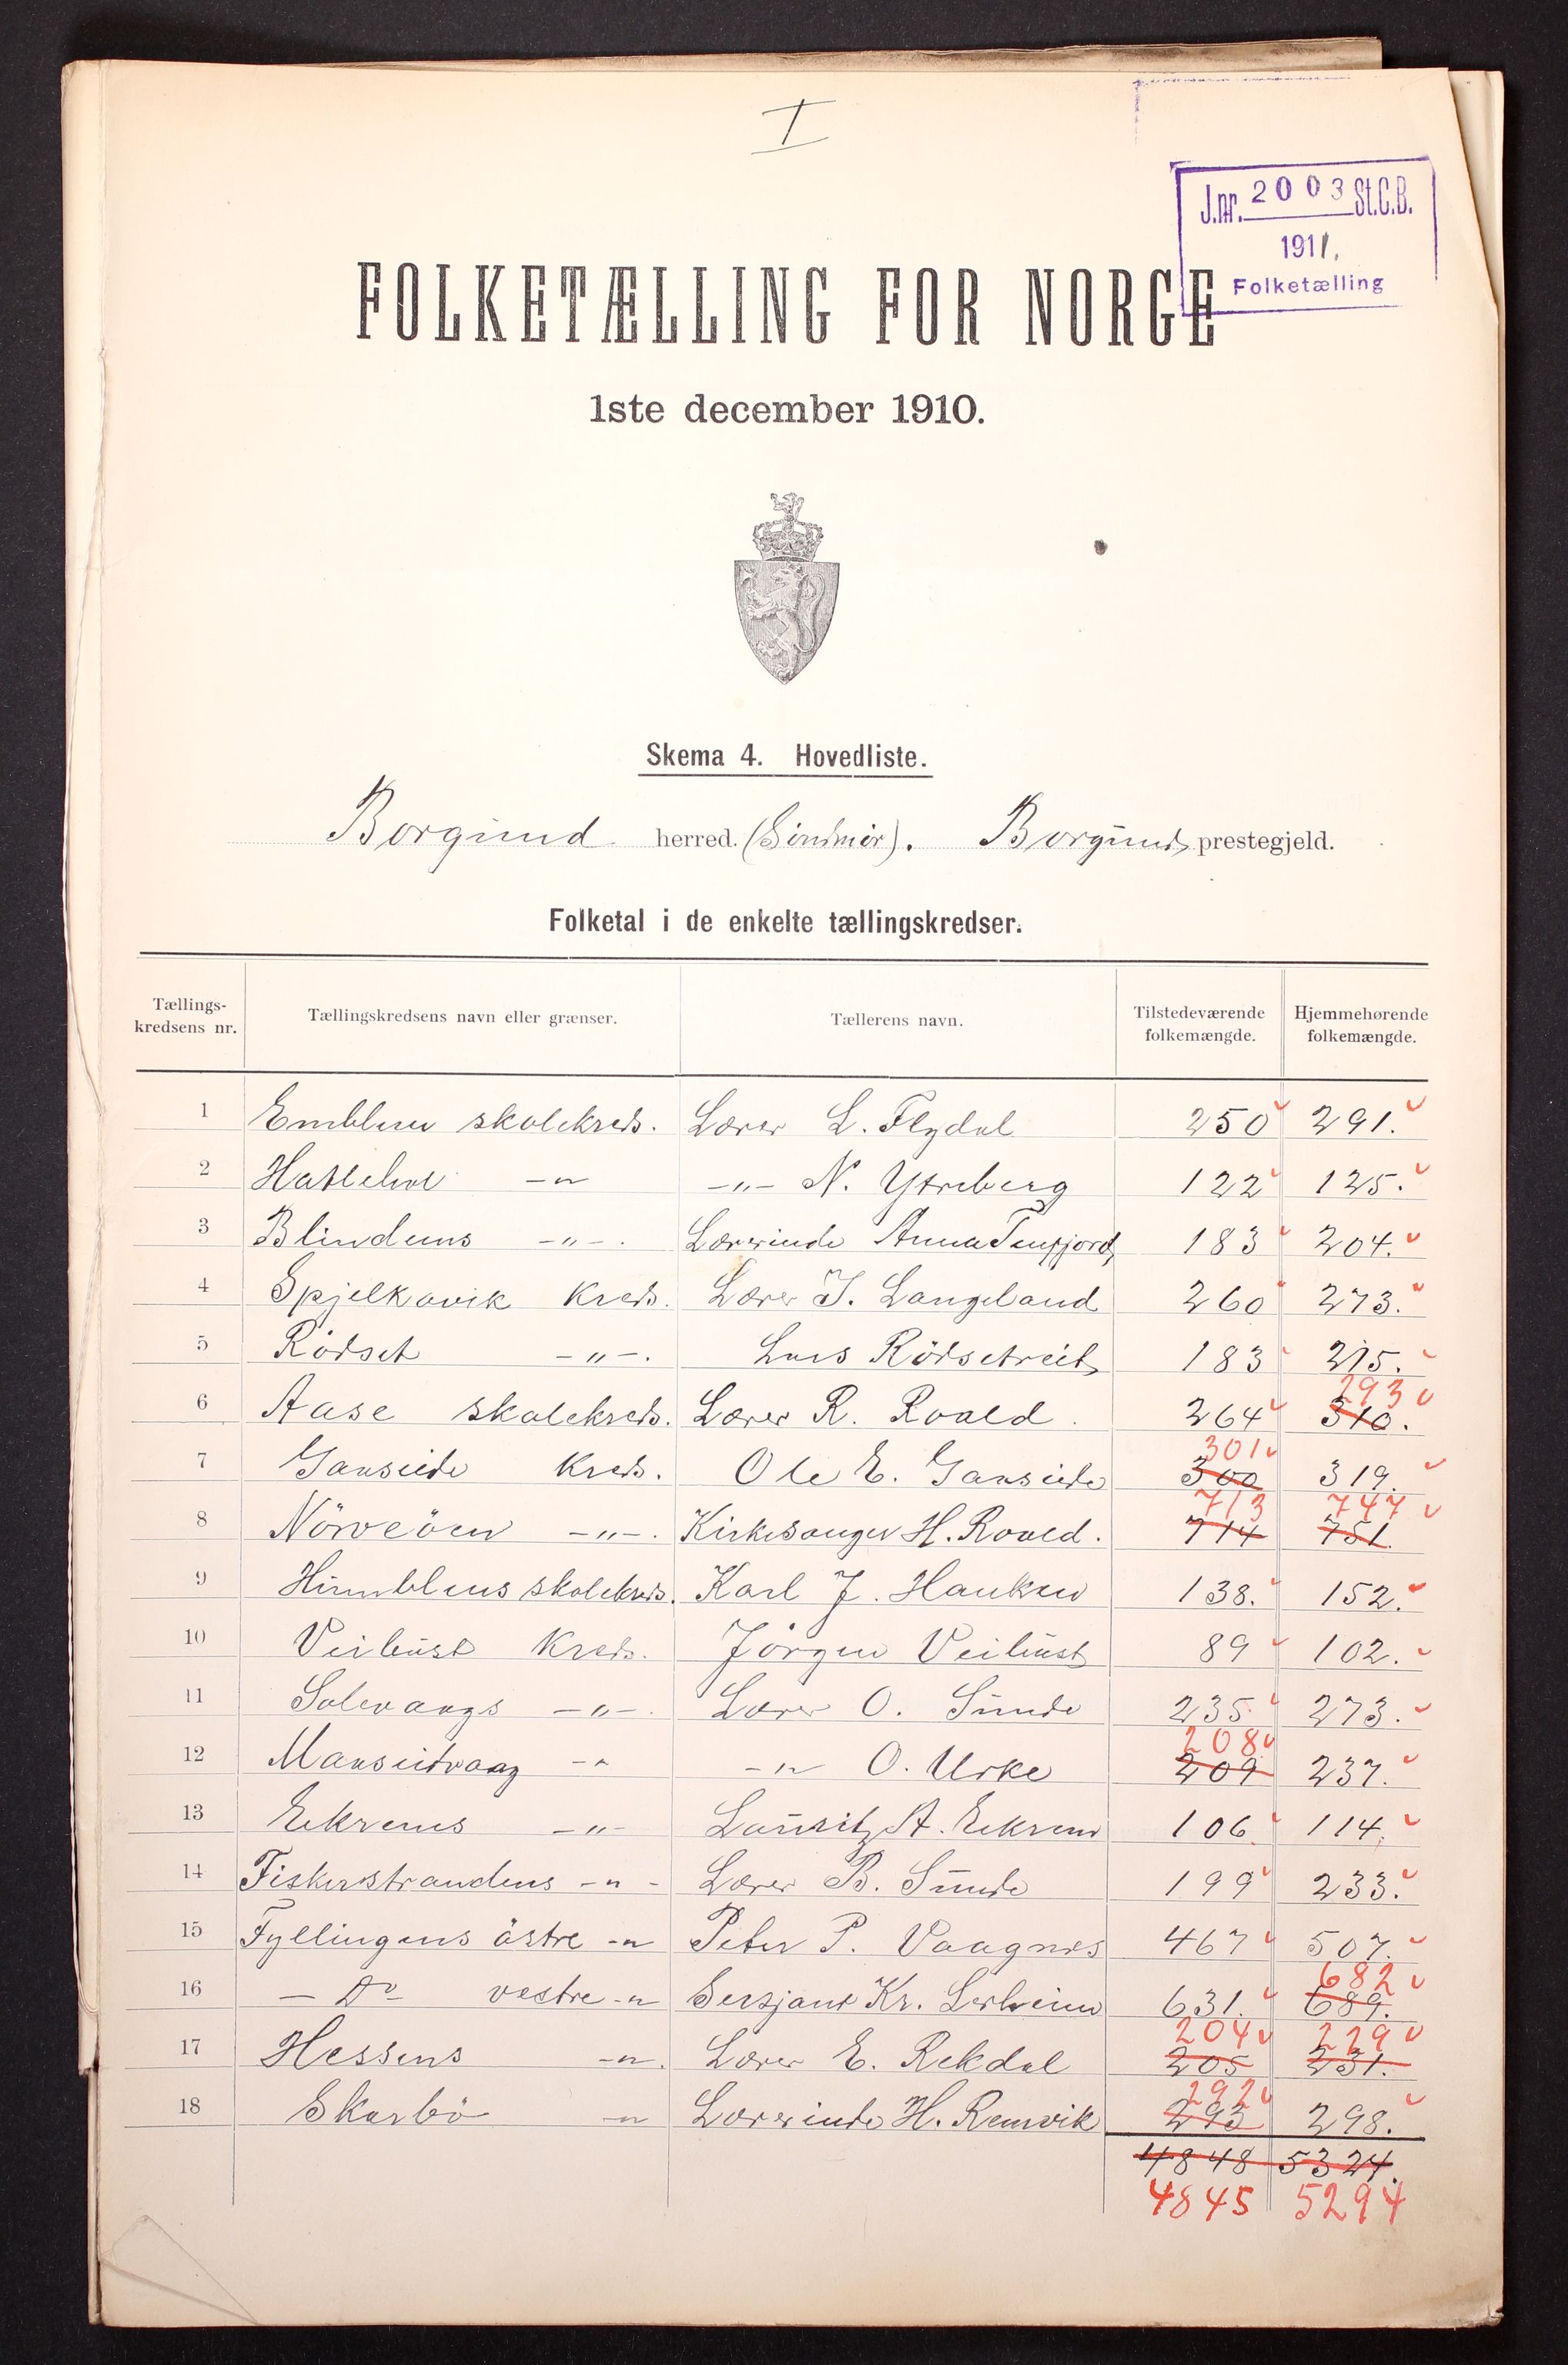 I
J.nr. 2003 St.C.B.
1911.
Folketælling
FOLKETÆLLING FOR NORGE
1ste december 1910.
Skema 4. Hovedliste.
Borgund herred. (Söndmör). Borgunds prestegjeld.
Folketal i de enkelte tællingskredser.
Tællings-kredsens nr. Tællingskredsens navn eller grænser. Tællerens navn. Tilstedeværende folkemængde. Hjemmehørende folkemængde.
1 Emblem skolekreds. Lærer L. Flydal 250 291.
2 Hatlehol -"- -"- N. Ytreberg 122 125.
3 Blindems -"-. Lærerinde Anna Tenfjord 183 204.
4 Spjelkavik Kreds. Lærer J. Langeland 260 273.
5 Rödset -"-. Lars Rödsetreit 183 215.
6 Aase skolekreds. Lærer R. Roald. 264 310. 293
7 Ganseide Kreds. Ole E. Ganseide 300 301 319.
8 Nörveöen -"-. Kirkesanger H. Roald. 714 713 751 747
9 Humblens skolekreds. Karl J. Hauken 138. 152.
10 Veibust Kreds. Jörgen Veibust 89 102.
11 Solevaags -"-. Lærer O. Sunde 235 273.
12 Mauseidvaag -"- -"- O. Urke 209 208. 237.
13 Eikrems -"- A. Eikrem 106. 114.
14 Fiskerstrandens -"- Lærer B. Sunde 199 233.
15 Fyllingens östre -"- Peter P. Vaagnes 467 507.
16 - Do - vestre -"- Sersjant Kr. Lerheim 631. 689. 682
17 Hessens -"-. Lærer E. Rekdal 205 204 231. 229
18 Skarbö -"- Lærerinde H. Remvik 293 292 298.
4848 5324.
4845 5294